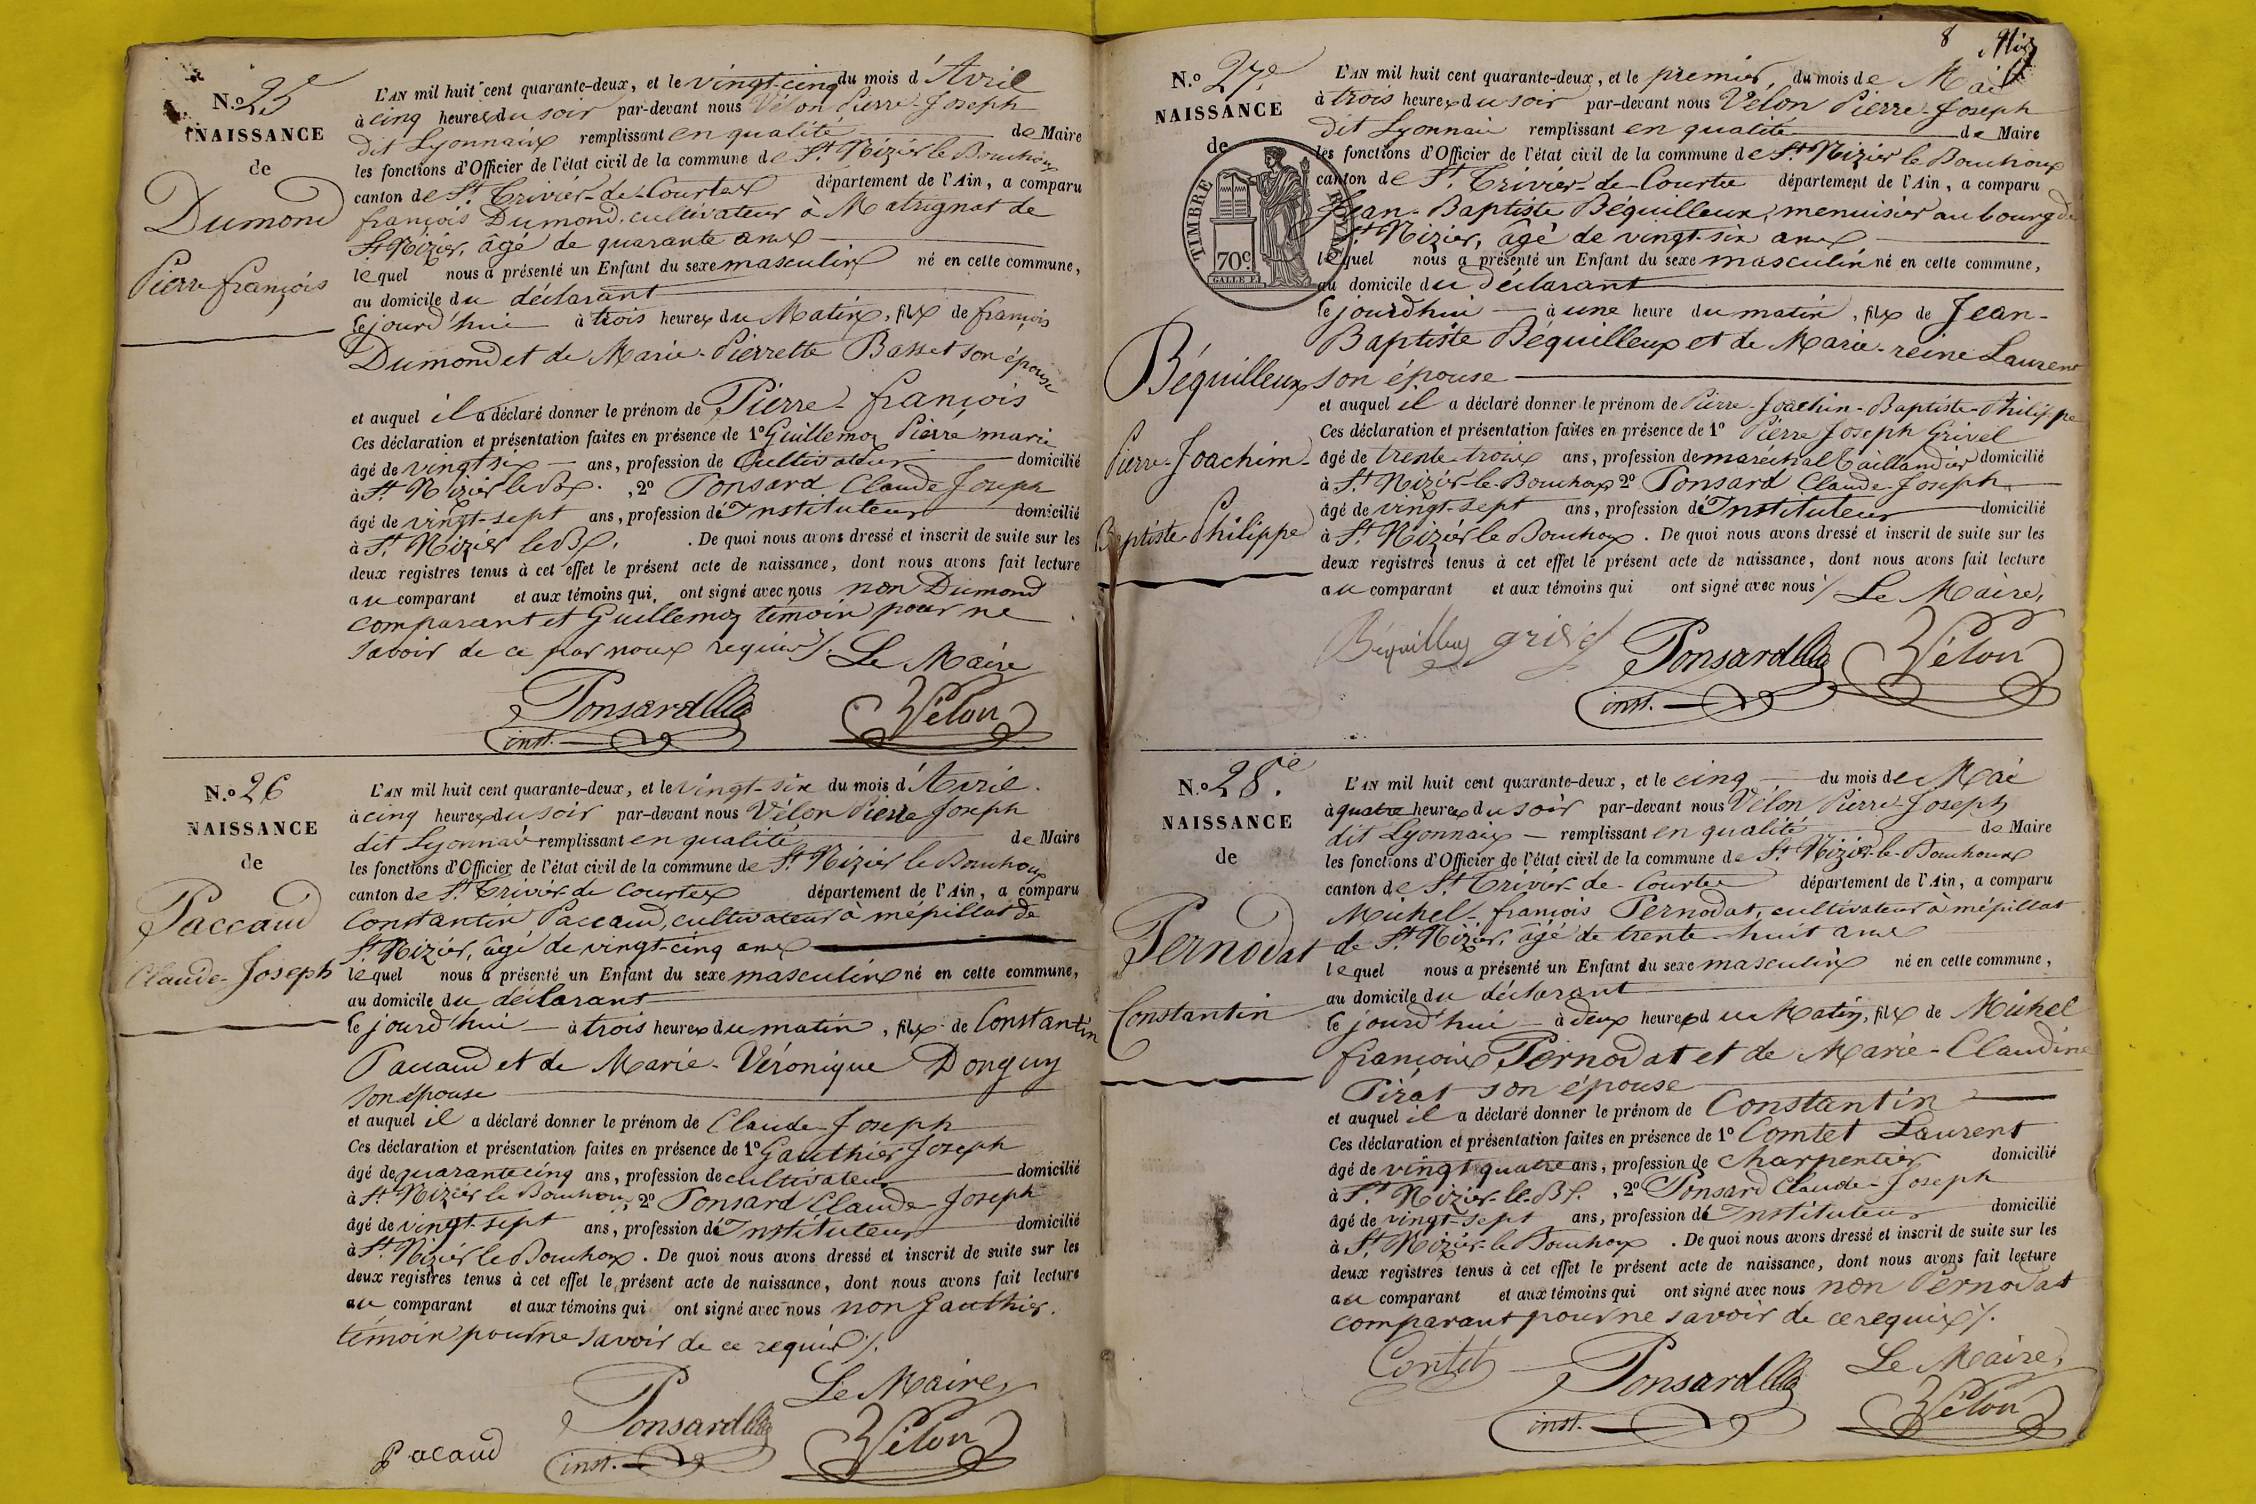 N.º 25e
NAISSANCE
de
Dumond
Pierre françois
L'AN mil huit cent quarante-deux, et le vingt-cinq du mois d'Avril
à cinq heures du soir par-devant nous Vélon Pierre-Joseph
dit Lyonnais remplissant en qualité de Maire
les fonctions d'Officier de l'état civil de la commune de St. Nizier le Bouchoux
canton de St. Trivier-de-Courtes département de l'Ain, a comparu
françois Dumond, cultivateur à Matrignat de
St. Nizier, âgé de quarante ans
lequel nous a présenté un Enfant du sexe masculin né en cette commune,
au domicile du déclarant
le jourd'hui à trois heures du Matin, fils de françois
Dumond et de Marie-Pierrette Basset son épouse
et auquel il a déclaré donner le prénom de Pierre-françois
Ces déclaration et présentation faites en présence de 1º Guillemoz Pierre marie
âgé de vingt six ans, profession de Cultivateur domicilié
à St. Nizier le Bx. , 2º Ponsard Claude Joseph
âgé de vingt-sept ans, profession d'Instituteur domicilié
à St. Nizier le Bx. . De quoi nous avons dressé et inscrit de suite sur les
deux registres tenus à cet effet le présent acte de naissance, dont nous avons fait lecture
au comparant et aux témoins qui, ont signé avec nous non Dumond
comparant et Guillemoz témoin pour ne
savoir de ce par nous requis /. Le Maire
Ponsard Cl. Vélon
inst.
N.º 26
NAISSANCE
de
Paccaud
Claude-Joseph
L'AN mil huit cent quarante-deux, et le vingt-six du mois d'Avril.
à cinq heures du soir par-devant nous Vélon Pierre Joseph
dit Lyonnais remplissant en qualité de Maire
les fonctions d'Officier de l'état civil de la commune de St. Nizier le Bouchoux
canton de St. Trivier de Courtes département de l'Ain, a comparu
Constantin Paccaud, cultivateur à mépillat de
St. Nizier, âgé de vingt-cinq ans
lequel nous a présenté un Enfant du sexe masculin né en cette commune,
au domicile du déclarant
le jourd'hui à trois heures du matin, fils de Constantin
Paccaud et de Marie-Véronique Donguy
son épouse
et auquel il a déclaré donner le prénom de Claude-Joseph
Ces déclaration et présentation faites en présence de 1º Gauthier Joseph
âgé de quarante cinq ans, profession de cultivateur domicilié
à St. Nizier le Bouchoux, 2º Ponsard Claude-Joseph
âgé de vingt-sept ans, profession d'Instituteur domicilié
à St. Nizier le Bouchoux . De quoi nous avons dressé et inscrit de suite sur les
deux registres tenus à cet effet le présent acte de naissance, dont nous avons fait lecture
au comparant et aux témoins qui ont signé avec nous non Gauthier.
témoin pour ne savoir de ce requis /.
Le Maire
Pacaud Ponsard Cl. Vélon
inst.
8
N.º 27e
NAISSANCE
de
TIMBRE ROYAL
70c
Béquilleux
Pierre-Joachim-
Baptiste Philippe
L'AN mil huit cent quarante-deux, et le premier, du mois de Mai
à trois heures du soir par-devant nous Vélon Pierre-Joseph
dit Lyonnais remplissant en qualité de Maire
les fonctions d'Officier de l'état civil de la commune de St. Nizier le Bouchoux
canton de St. Trivier-de-Courtes département de l'Ain, a comparu
Jean-Baptiste Béquilleux, menuisier au bourg de
St. Nizier, âgé de vingt-six ans
lequel nous a présenté un Enfant du sexe masculin né en cette commune,
au domicile du déclarant
le jourd'hui à une heure du matin, fils de Jean-
Baptiste Béquilleux et de Marie-reine Laurent
son épouse
et auquel il a déclaré donner le prénom de Pierre-Joachin-Baptiste-Philippe
Ces déclaration et présentation faites en présence de 1º Pierre Joseph Grivel
âgé de trente-trois ans, profession de maréchal taillandier domicilié
à St. Nizier-le-Bouchoux 2º Ponsard Claude-Joseph
âgé de vingt-sept ans, profession d'Instituteur domicilié
à St. Nizier le Bouchoux . De quoi nous avons dressé et inscrit de suite sur les
deux registres tenus à cet effet le présent acte de naissance, dont nous avons fait lecture
au comparant et aux témoins qui ont signé avec nous / Le Maire,
Béquilleux grivel Ponsard Cl. Vélon
inst.
N.º 28e.
NAISSANCE
de
Pernodat
Constantin
L'AN mil huit cent quarante-deux, et le cinq du mois de Mai
à quatre heures du soir par-devant nous Vélon Pierre-Joseph
dit Lyonnais remplissant en qualité de Maire
les fonctions d'Officier de l'état civil de la commune de St. Nizier-le-Bouchoux
canton de St. Trivier-de-Courtes département de l'Ain, a comparu
Michel-françois Pernodat, cultivateur à mépillat
de St. Nizier, âgé de trente-huit ans
lequel nous a présenté un Enfant du sexe masculin né en cette commune,
au domicile du déclarant
le jourd'hui à deux heures du Matin, fils de Michel
françois Pernodat et de Marie-Claudine
Pirat son épouse
et auquel il a déclaré donner le prénom de Constantin
Ces déclaration et présentation faites en présence de 1º Comtet Laurent
âgé de vingt quatre ans, profession de charpentier domicilié
à St. Nizier-le-Bx. , 2º Ponsard Claude-Joseph
âgé de vingt-sept ans, profession d'Instituteur domicilié
à St. Nizier-le-Bouchoux . De quoi nous avons dressé et inscrit de suite sur les
deux registres tenus à cet effet le présent acte de naissance, dont nous avons fait lecture
au comparant et aux témoins qui ont signé avec nous non Pernodat
comparant pour ne savoir de ce requis /.
Contet Ponsard Cl. Le Maire,
inst. Vélon